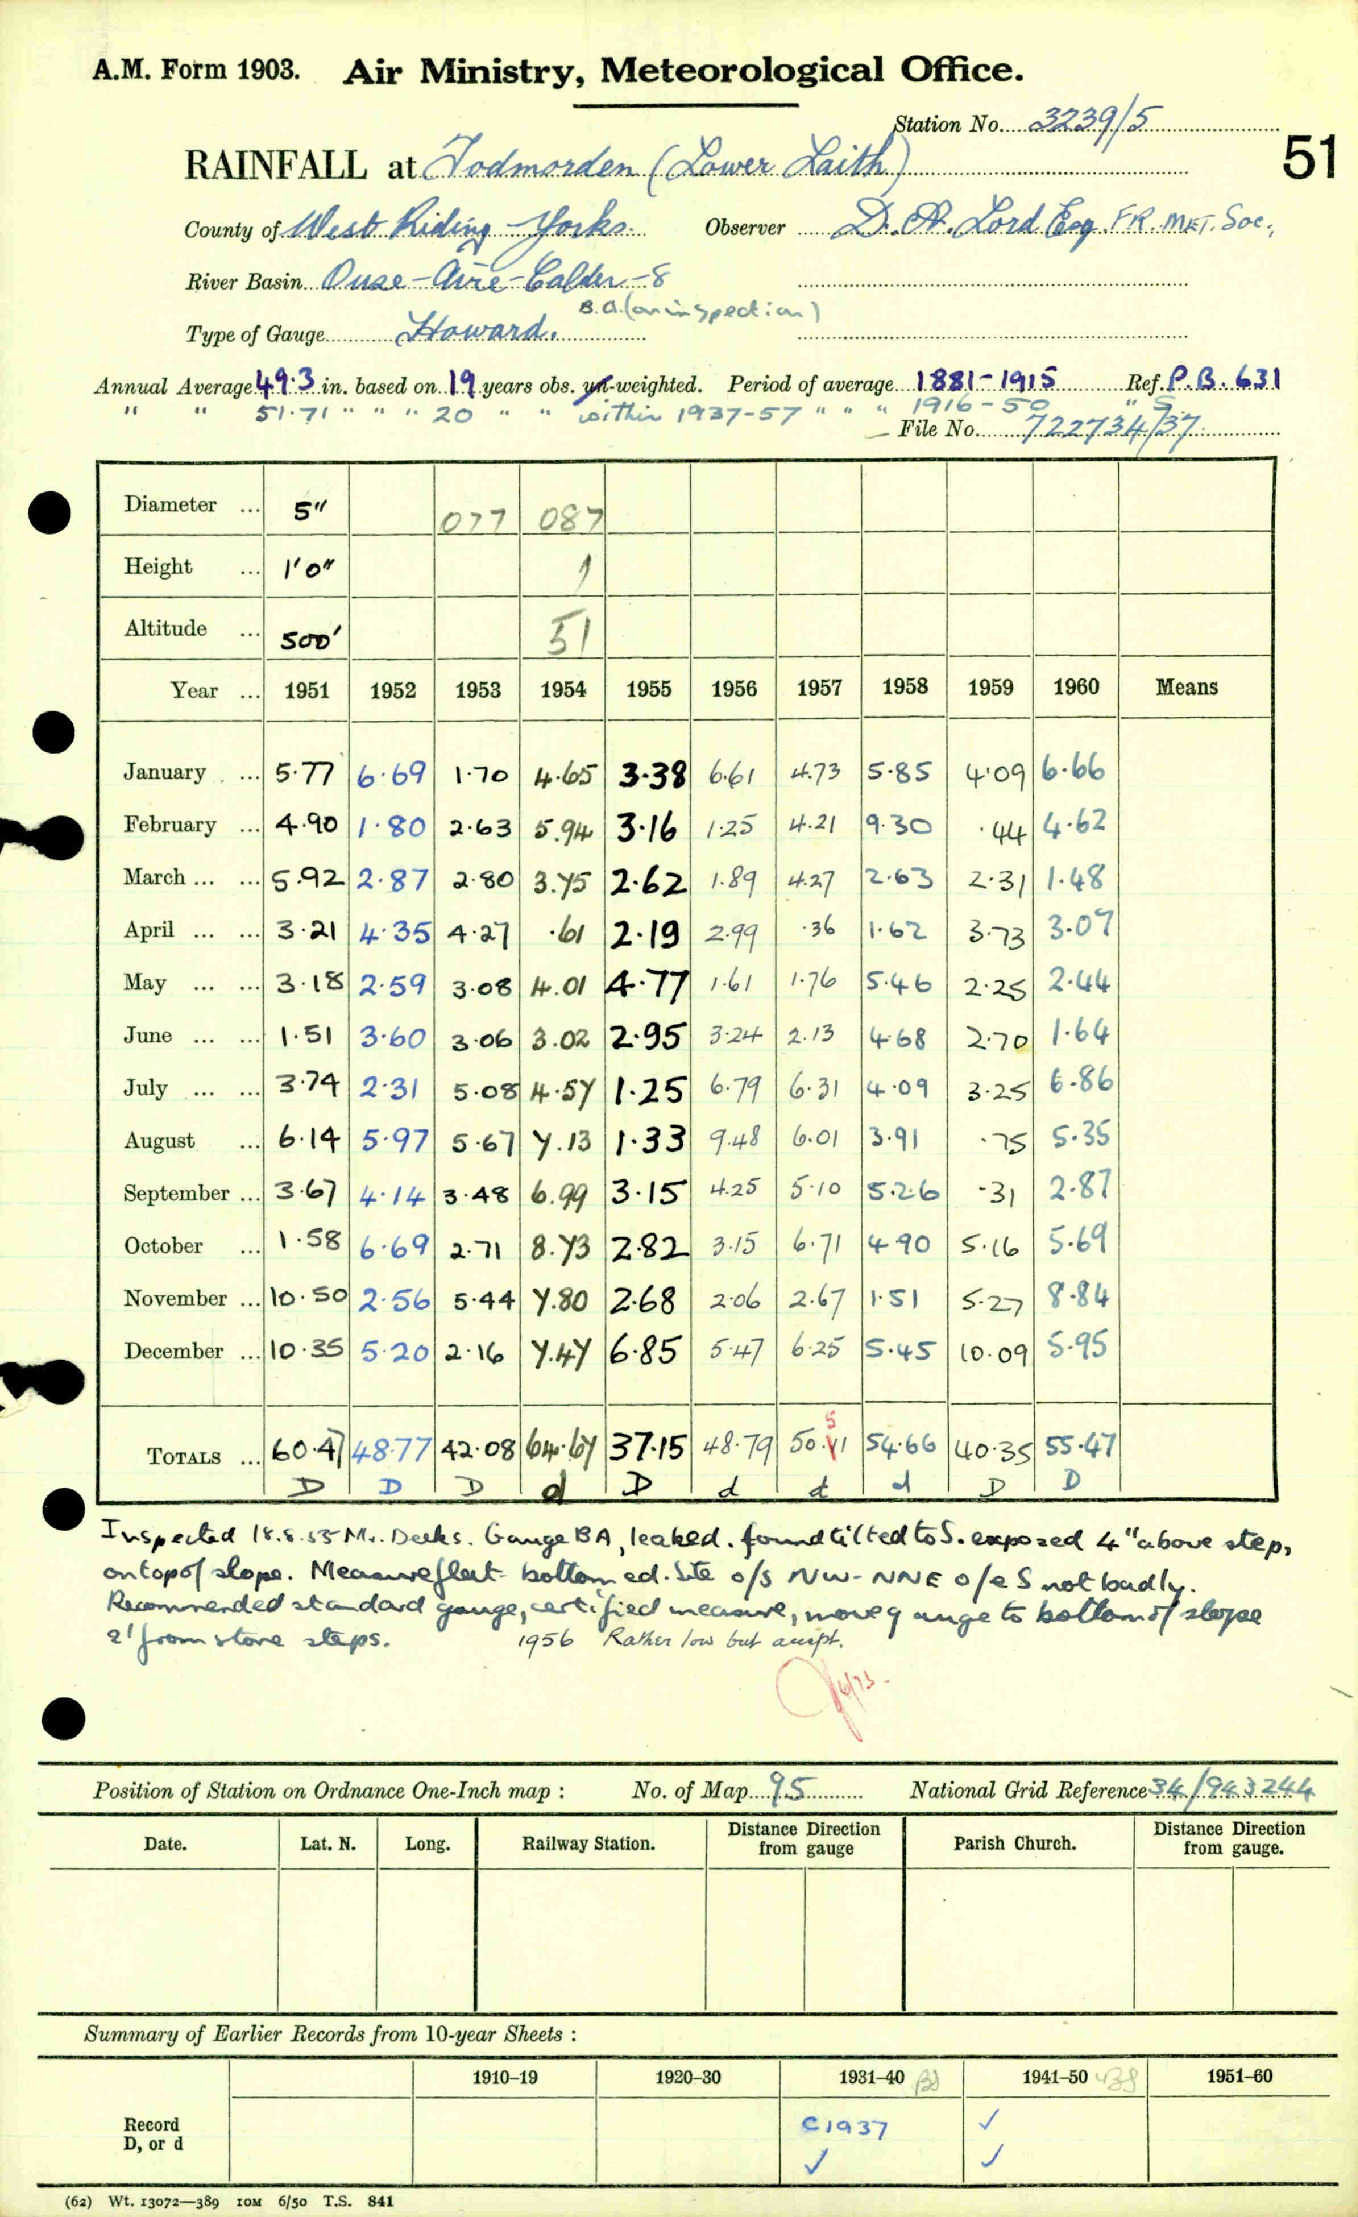 A.M. Form 1903. Air Ministry, Meteorological Office.
Station No. 3239/5
51
RAINFALL at Todmorden (Lower Laith)
County of West Riding Yorks. Observer D. A. Lord Esq. F.R. MET. Soc.,
River Basin Ouse-Aire-Calder-8
B.A. (on inspection)
Type of Gauge Howard.
Annual Average 49.3 in. based on 19 years obs. un-weighted. Period of average 1881-1915 Ref. P.B. 631
" " 51.71 " " " 20 " " within 1937-57 " " " 1916-50 " S.
File No. 722734/37
Diameter ... 5" 077 087
Height ... 1'0" 1
Altitude ... 500' 51
Year ... 1951 1952 1953 1954 1955 1956 1957 1958 1959 1960 Means
January ... 5.77 6.69 1.70 4.65 3.38 6.61 4.73 5.85 4.09 6.66
February ... 4.90 1.80 2.63 5.94 3.16 1.25 4.21 9.30 .44 4.62
March ... ... 5.92 2.87 2.80 3.75 2.62 1.89 4.27 2.63 2.31 1.48
April ... ... 3.21 4.35 4.27 .61 2.19 2.99 .36 1.62 3.73 3.07
May ... ... 3.18 2.59 3.08 4.01 4.77 1.61 1.76 5.46 2.25 2.44
June ... ... 1.51 3.60 3.06 3.02 2.95 3.24 2.13 4.68 2.70 1.64
July ... ... 3.74 2.31 5.08 4.57 1.25 6.79 6.31 4.09 3.25 6.86
August ... 6.14 5.97 5.67 7.13 1.33 9.48 6.01 3.91 .75 5.35
September ... 3.67 4.14 3.48 6.99 3.15 4.25 5.10 5.26 .31 2.87
October ... 1.58 6.69 2.71 8.73 2.82 3.15 6.71 4.90 5.16 5.69
November ... 10.50 2.56 5.44 7.80 2.68 2.06 2.67 1.51 5.27 8.84
December ... 10.35 5.20 2.16 7.47 6.85 5.47 6.25 5.45 10.09 5.95
5
TOTALS ... 60.47 48.77 42.08 64.67 37.15 48.79 50.41 54.66 40.35 55.47
D D D d D d d d D D
Inspected 18.8.55 Mr. Deeks. Gauge BA, leaked. found tilted to S. exposed 4" above step,
on top of slope. Measure flat bottomed. Site o/s NW-NNE o/e S not badly.
Recommended standard gauge, certified measure, move gauge to bottom of slope
2' from stone steps. 1956 Rather low but accept.
6/73.
Position of Station on Ordnance One-Inch map : No. of Map 95 National Grid Reference 34/943244
Date. Lat. N. Long. Railway Station. Distance Direction from gauge Parish Church. Distance Direction from gauge.
Summary of Earlier Records from 10-year Sheets :
1910-19 1920-30 1931-40 1941-50 1951-60
Record C1937 ✓
D, or d ✓ ✓
(62) Wt. 13072—389 10M 6/50 T.S. 841